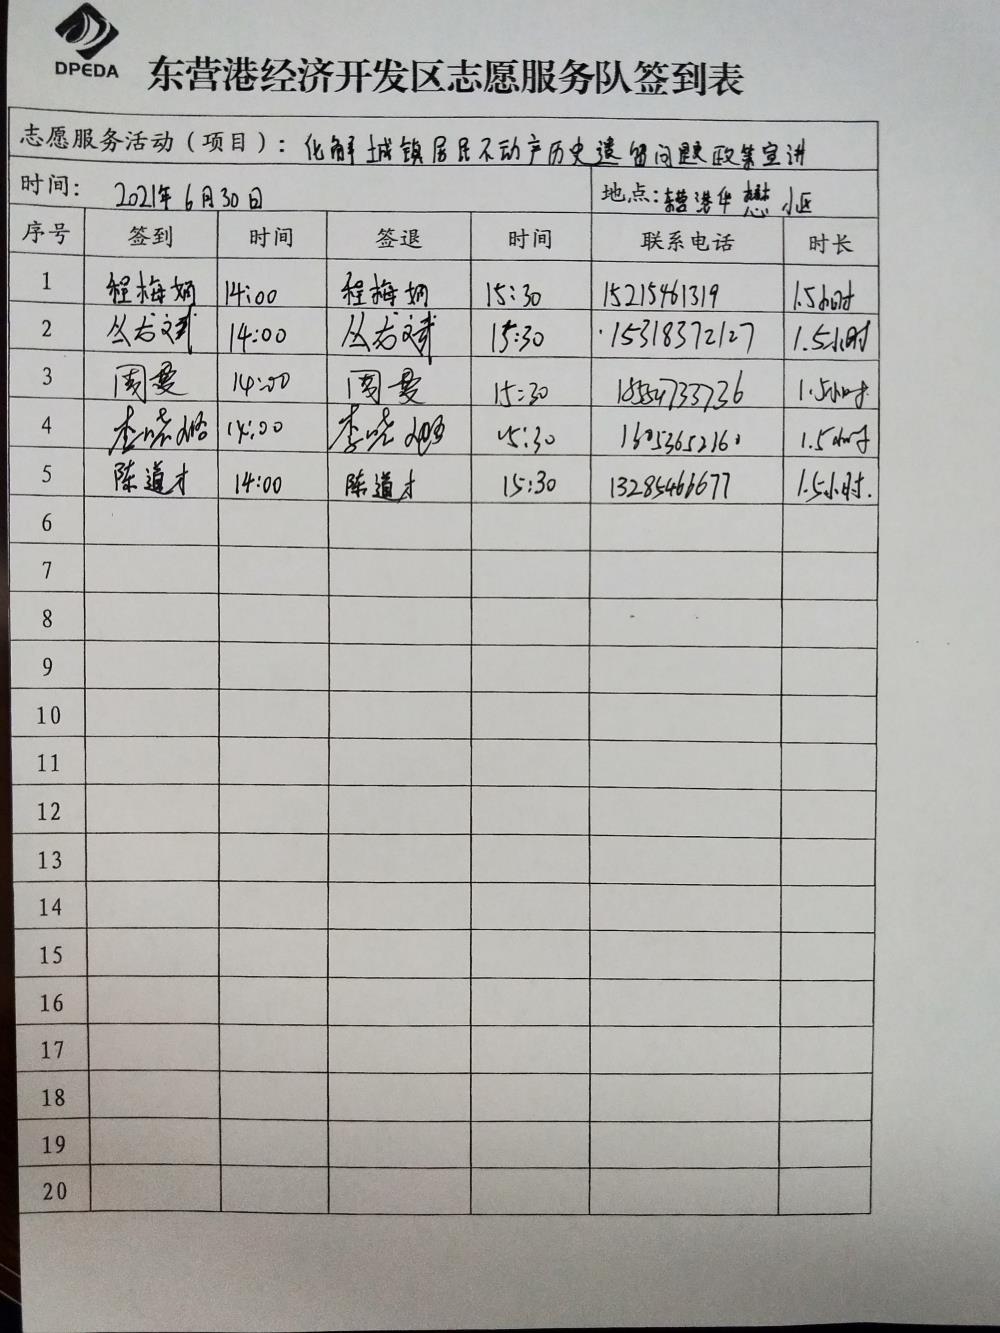 DPEDA
东营港经济开发区志愿服务队签到表
志愿服务活动（项目）：化解城镇居民不动产历史遗留问题政策宣讲
时间： 2021年6月30日 地点：东营港华懋小区
序号 签到 时间 签退 时间 联系电话 时长
1 程梅娟 14:00 程梅娟 15:30 15215461319 1.5小时
2 丛龙文斌 14:00 丛龙文斌 15:30 15318372127 1.5小时
3 周曼 14:00 周曼 15:30 18554733736 1.5小时
4 李晓 14:00 李晓 15:30 1.5小时
5 陈道才 14:00 陈道才 15:30 13285466677 1.5小时.
6
7
8
9
10
11
12
13
14
15
16
17
18
19
20